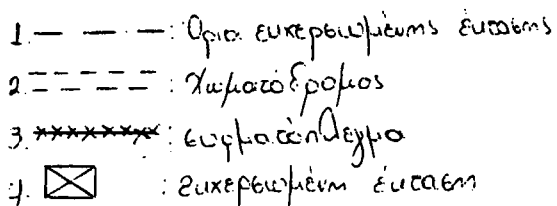 1. : Όρια ευχερσωμένης έκτασης
2 : Χωματόδρομος
3. : συρματόπλεγμα
4. : ευχερσωμένη έκταση